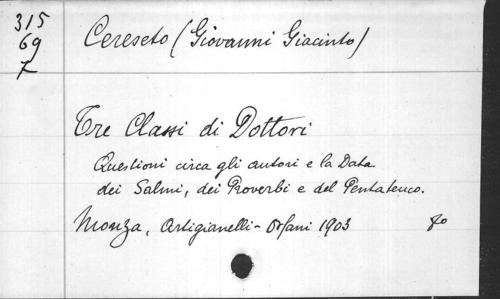 315
69
7
Cereseto (Giovanni Giacinto)
Tre Classi di Dottori
Questioni circa gli autori e la Data
dei Salmi, dei Proverbi e del Pentateuco.
Monza, Artigianelli-Orfani 1903